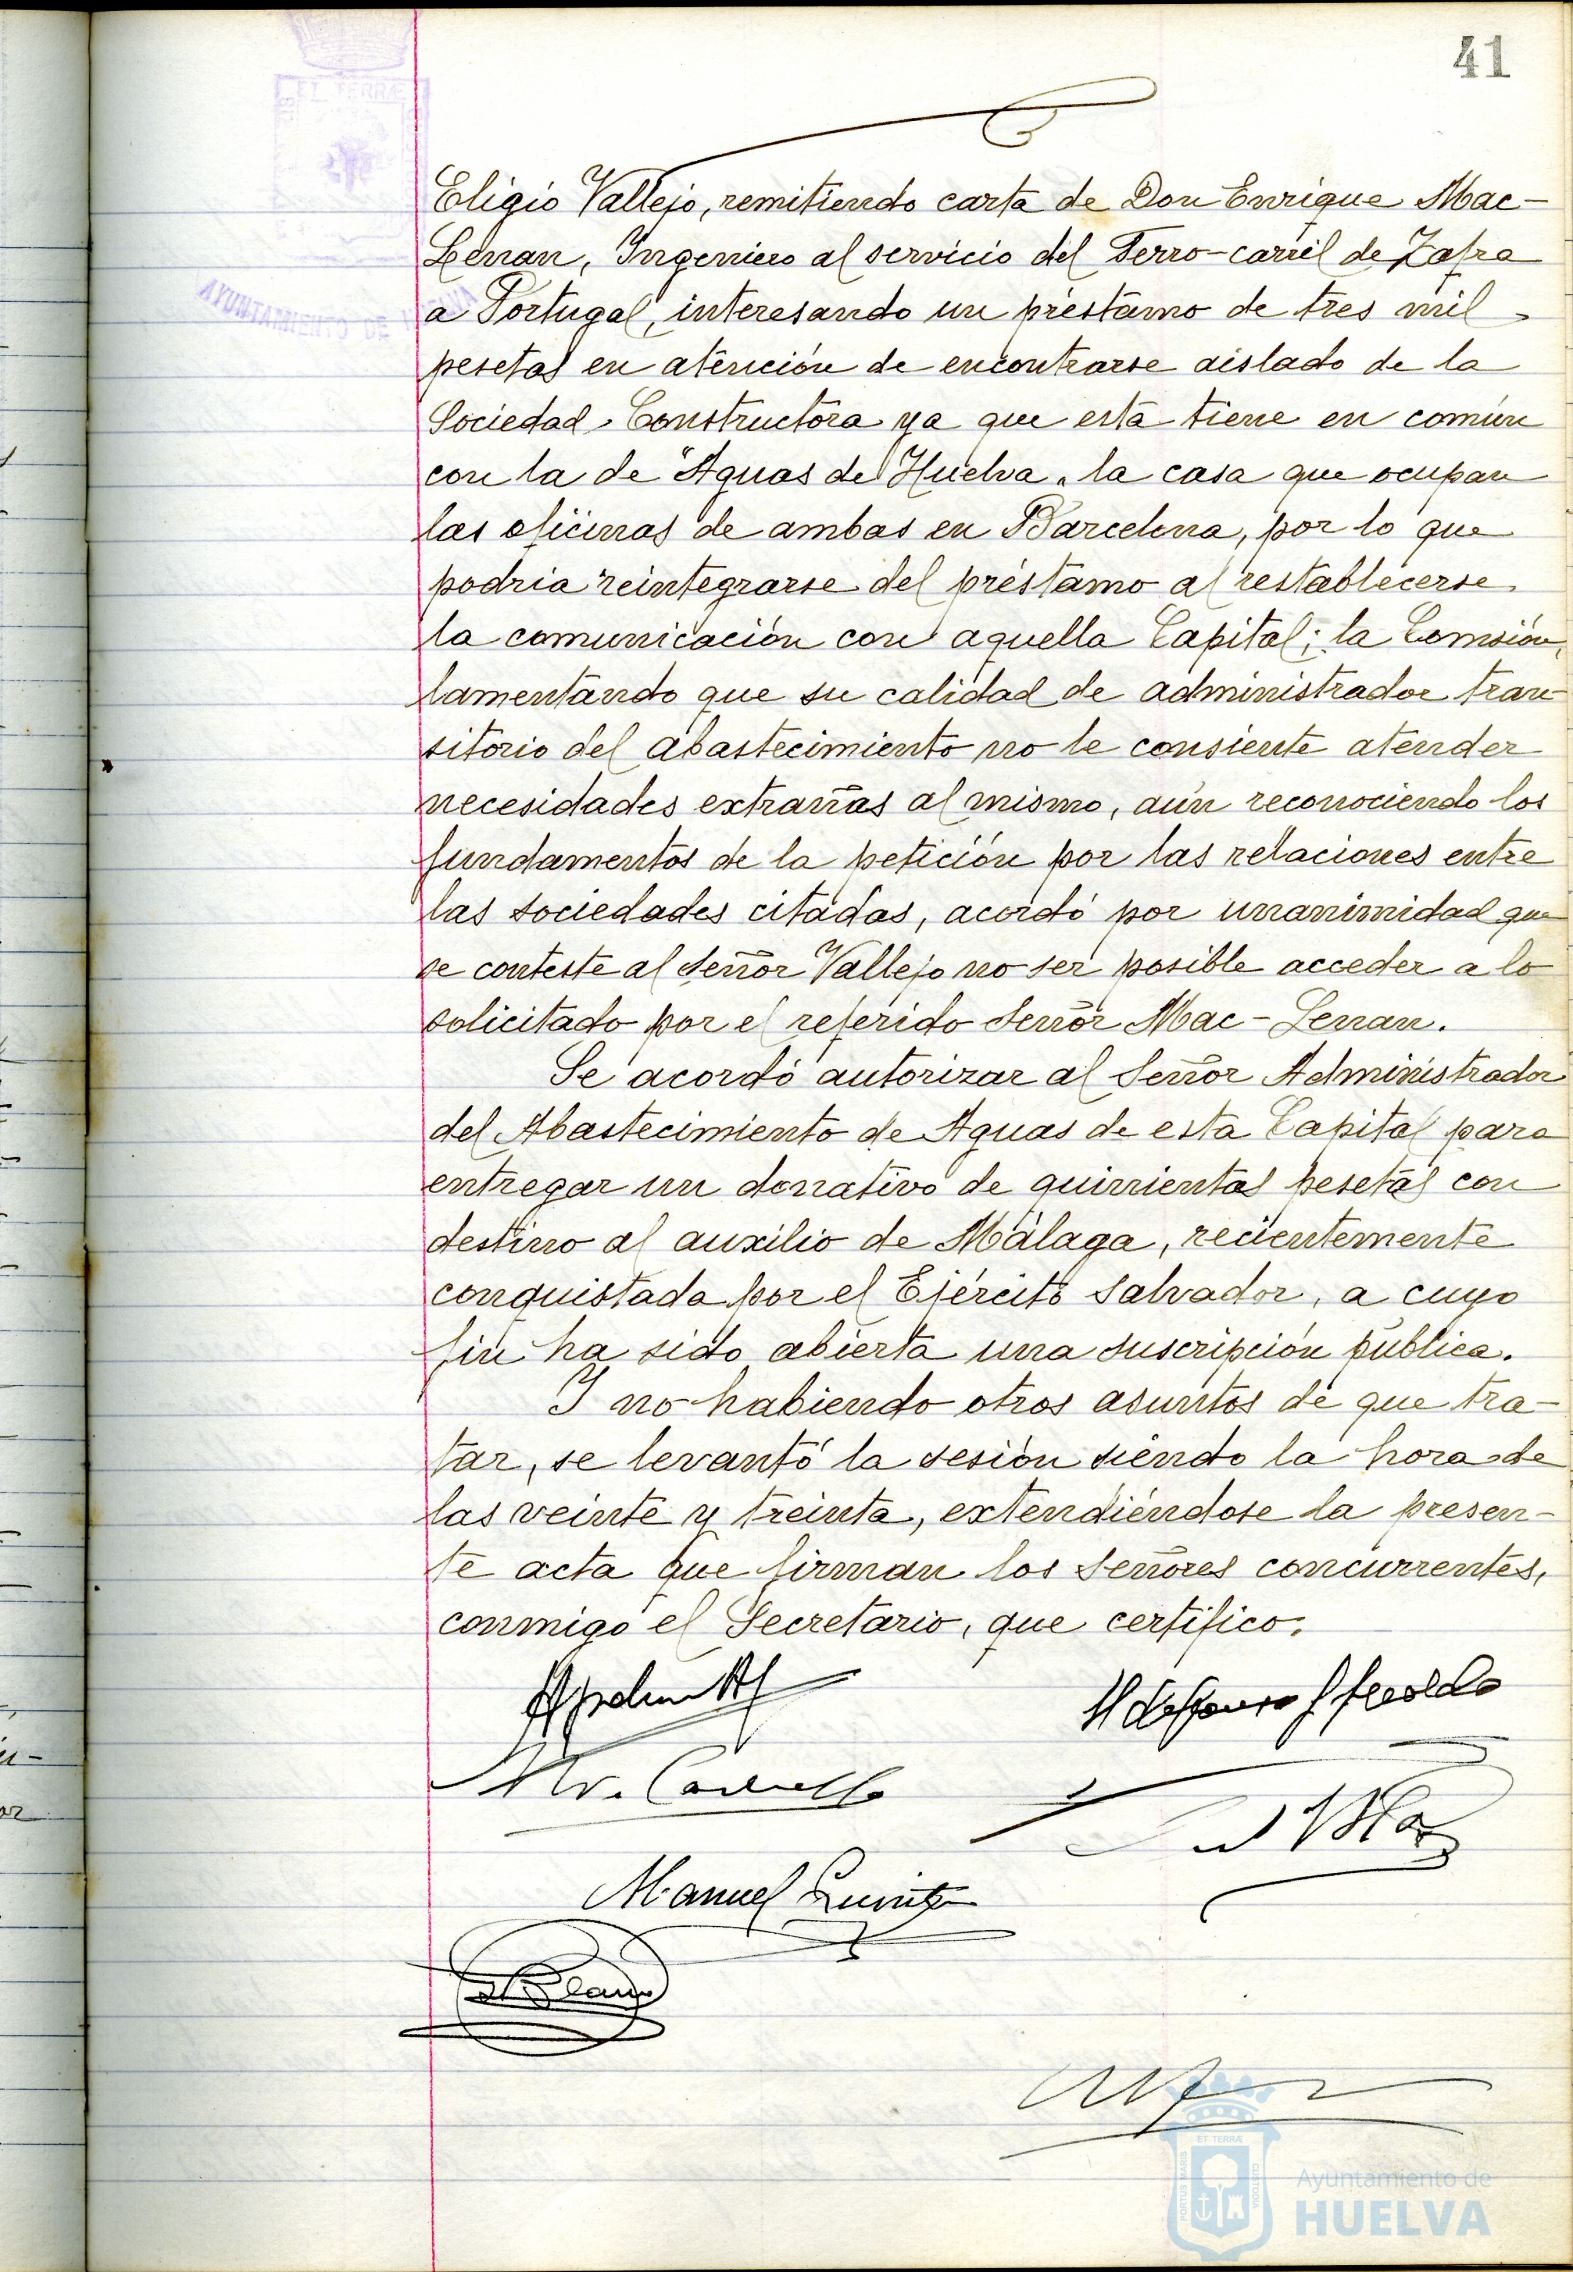 41
ET TERRÆ
AYUNTAMIENTO DE
Eligio Vallejo, remitiendo carta de Don Enrique Mac-
Lenan, Ingeniero al servicio del Ferro-carril de Zafra
a Portugal, interesando un préstamo de tres mil
pesetas en atención de encontrarse aislado de la
Sociedad Constructora ya que esta tiene en común
con la de "Aguas de Huelva" la casa que ocupan
las oficinas de ambas en Barcelona, por lo que
podria reintegrarse del préstamo al restablecerse
la comunicación con aquella Capital; la Comisión,
lamentando que su calidad de administrador tran-
sitorio del abastecimiento no le consiente atender
necesidades extrañas al mismo, aún reconociendo los
fundamentos de la petición por las relaciones entre
las sociedades citadas, acordó por unanimidad que
se conteste al señor Vallejo no ser posible acceder a lo
solicitado por el referido señor Mac-Lenan.
Se acordó autorizar al Señor Administrador
del Abastecimiento de Aguas de esta Capital para
entregar un donativo de quinientas pesetas con
destino al auxilio de Málaga, recientemente
conquistada por el Ejército Salvador, a cuyo
fin ha sido abierta una suscripción pública.
Y no habiendo otros asuntos de que tra-
tar, se levantó la sesión siendo la hora de
las veinte y treinta, extendiéndose la presen-
te acta que firman los señores concurrentes,
conmigo el Secretario, que certifico.
Manuel
ET TERRÆ
PORTUS MARIS
CUSTODIA
Ayuntamiento de
HUELVA